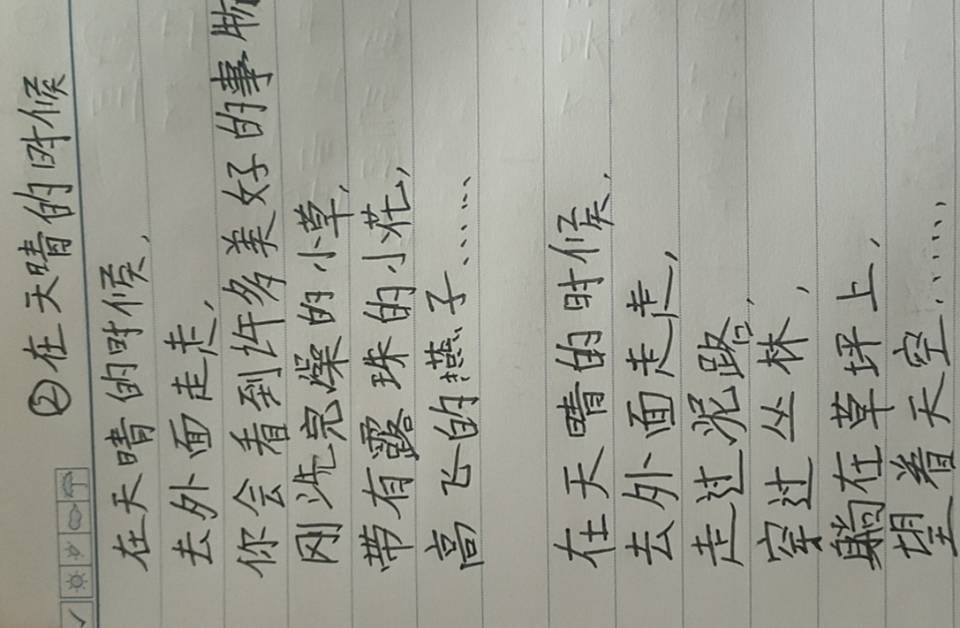 ②在天晴的时候
在天晴的时候，
去外面走走，
你会看到许多美好的事物
刚洗完燥的小草，
带有露珠的小花，
高飞的燕子……
在天晴的时候，
去外面走走，
走过泥路，
穿过丛林，
躺在草坪上，
望着天空……，